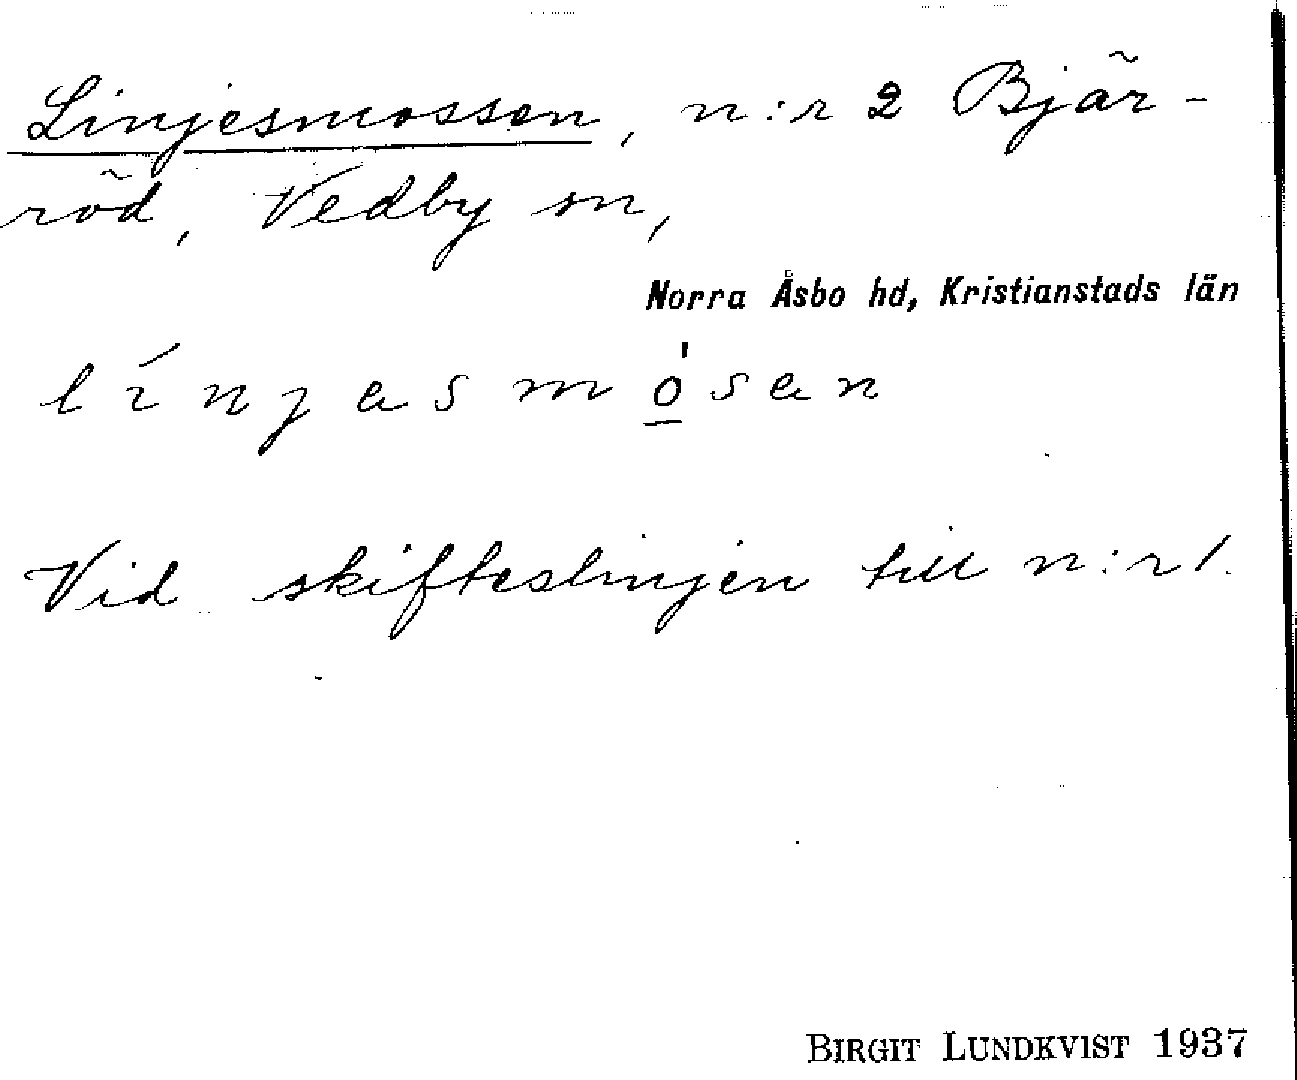 Linjesmossen, n:r 2 Bjär-
röd, Vedby sn,
Norra Åsbo hd, Kristianstads län
línjasmo̲̍san
Vid skifteslinjen till n:r 1.
BIRGIT LUNDKVIST 1937